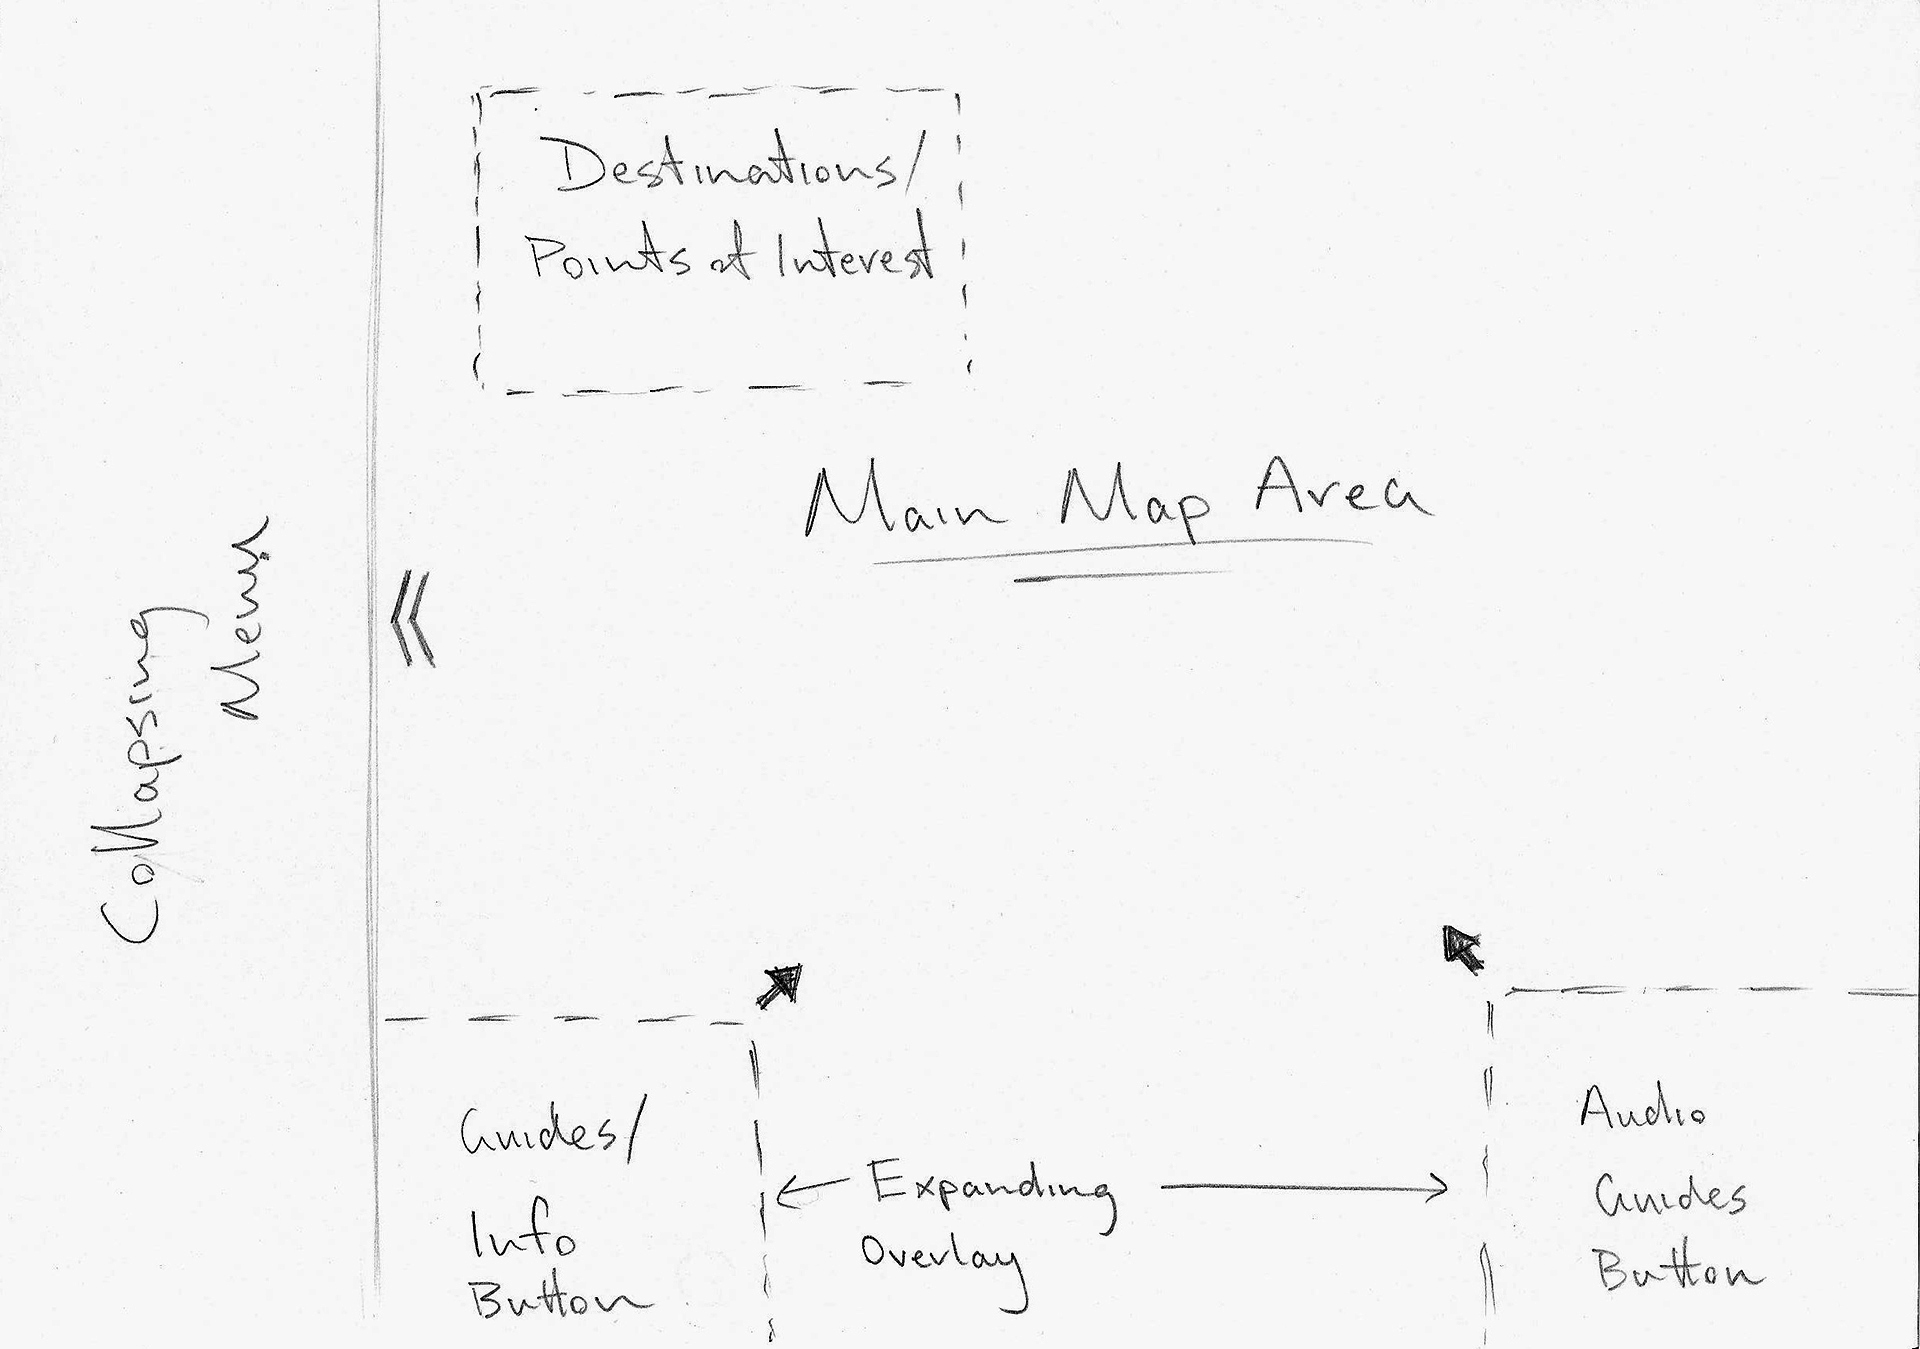 Collapsing
Menu
Destinations/
Points of Interest
Main Map Area
Guides/
Info
Button
Expanding
Overlay
Audio
Guides
Button